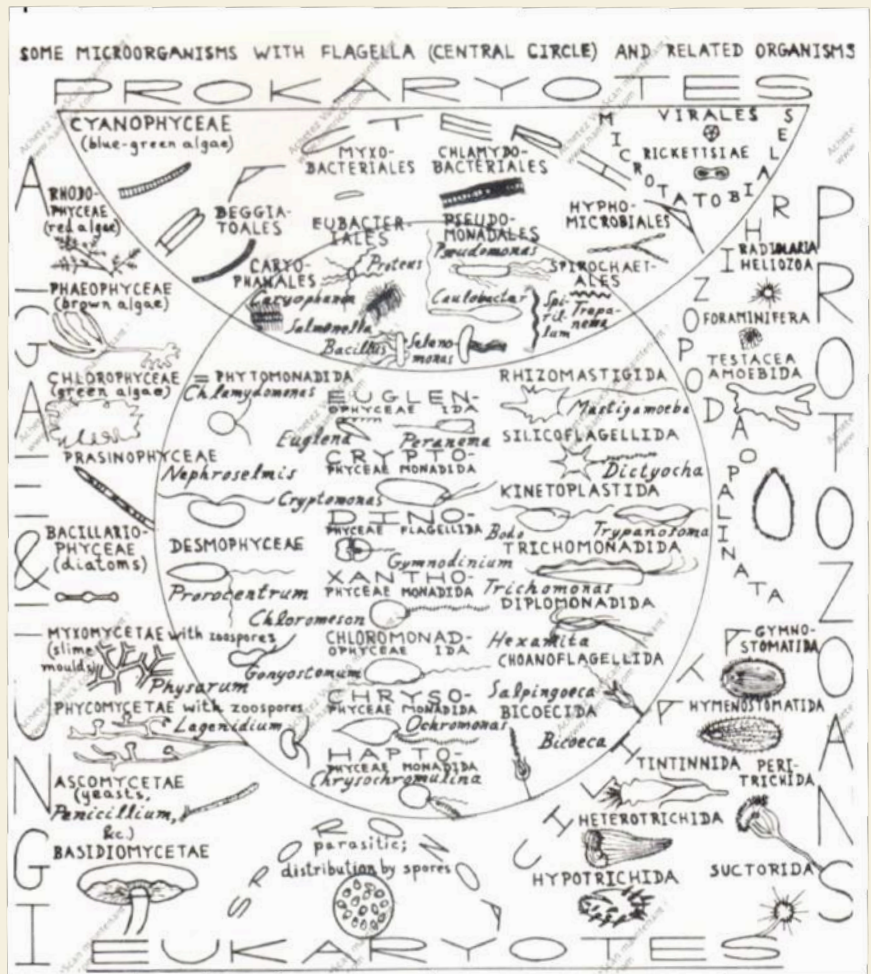 SOME MICROORGANISMS WITH FLAGELLA (CENTRAL CIRCLE) AND RELATED ORGANISMS
PROKARYOTES
CYANOPHYCEAE
(blue-green algae)
BACTERIA
MYXO-
BACTERIALES
CHLAMYDO-
BACTERIALES
MICROTATOBIALES
VIRALES
RICKETTSIAE
BEGGIA-
TOALES
EUBACTER-
IALES
PSEUDO-
MONADALES
HYPHO-
MICROBIALES
CARYO-
PHANALES
Caryophanon
Proteus
Salmonella
Bacillus
Pseudomonas
Caulobacter
Seleno-
monas
Spi-
ril-
lum
SPIROCHAET-
ALES
Trepo-
nema
ALGAE & FUNGI
RHODO-
PHYCEAE
(red algae)
PHAEOPHYCEAE
(brown algae)
CHLOROPHYCEAE
(green algae)
= PHYTOMONADIDA
Chlamydomonas
PRASINOPHYCEAE
Nephroselmis
BACILLARIO-
PHYCEAE
(diatoms)
DESMOPHYCEAE
Prorocentrum
MYXOMYCETAE with zoospores
(slime
moulds)
Physarum
PHYCOMYCETAE with zoospores
Lagenidium
ASCOMYCETAE
(yeasts,
Penicillium,
&c.)
BASIDIOMYCETAE
EUGLEN-
OPHYCEAE IDA
Euglena
Peranema
CRYPTO-
PHYCEAE MONADIDA
Cryptomonas
DINO-
PHYCEAE FLAGELLIDA
Gymnodinium
XANTHO-
PHYCEAE MONADIDA
Chloromeson
CHLOROMONAD-
OPHYCEAE IDA
Gonyostomum
CHRYSO-
PHYCEAE MONADIDA
Ochromonas
HAPTO-
PHYCEAE MONADIDA
Chrysochromulina
RHIZOMASTIGIDA
Mastigamoeba
SILICOFLAGELLIDA
Dictyocha
KINETOPLASTIDA
Bodo
Trypanosoma
TRICHOMONADIDA
Trichomonas
DIPLOMONADIDA
Hexamita
CHOANOFLAGELLIDA
Salpingoeca
BICOECIDA
Bicoeca
PROTOZOANS
RHIZOPODA
RADIOLARIA
HELIOZOA
FORAMINIFERA
TESTACEA
AMOEBIDA
OPALINATA
GYMNO-
STOMATIDA
HYMENOSTOMATIDA
TINTINNIDA
PERI-
TRICHIDA
HETEROTRICHIDA
HYPOTRICHIDA
SUCTORIDA
SPOROZOA
parasitic;
distribution by spores
EUKARYOTES